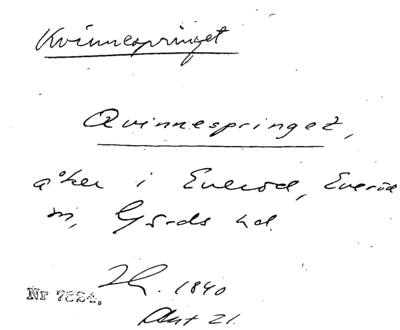 Kvinnespringet
Qvinnespringet,
åker i Everöd, Everöd
sn, Gärds hd.
1840
Akt 21.
Nr 7824.